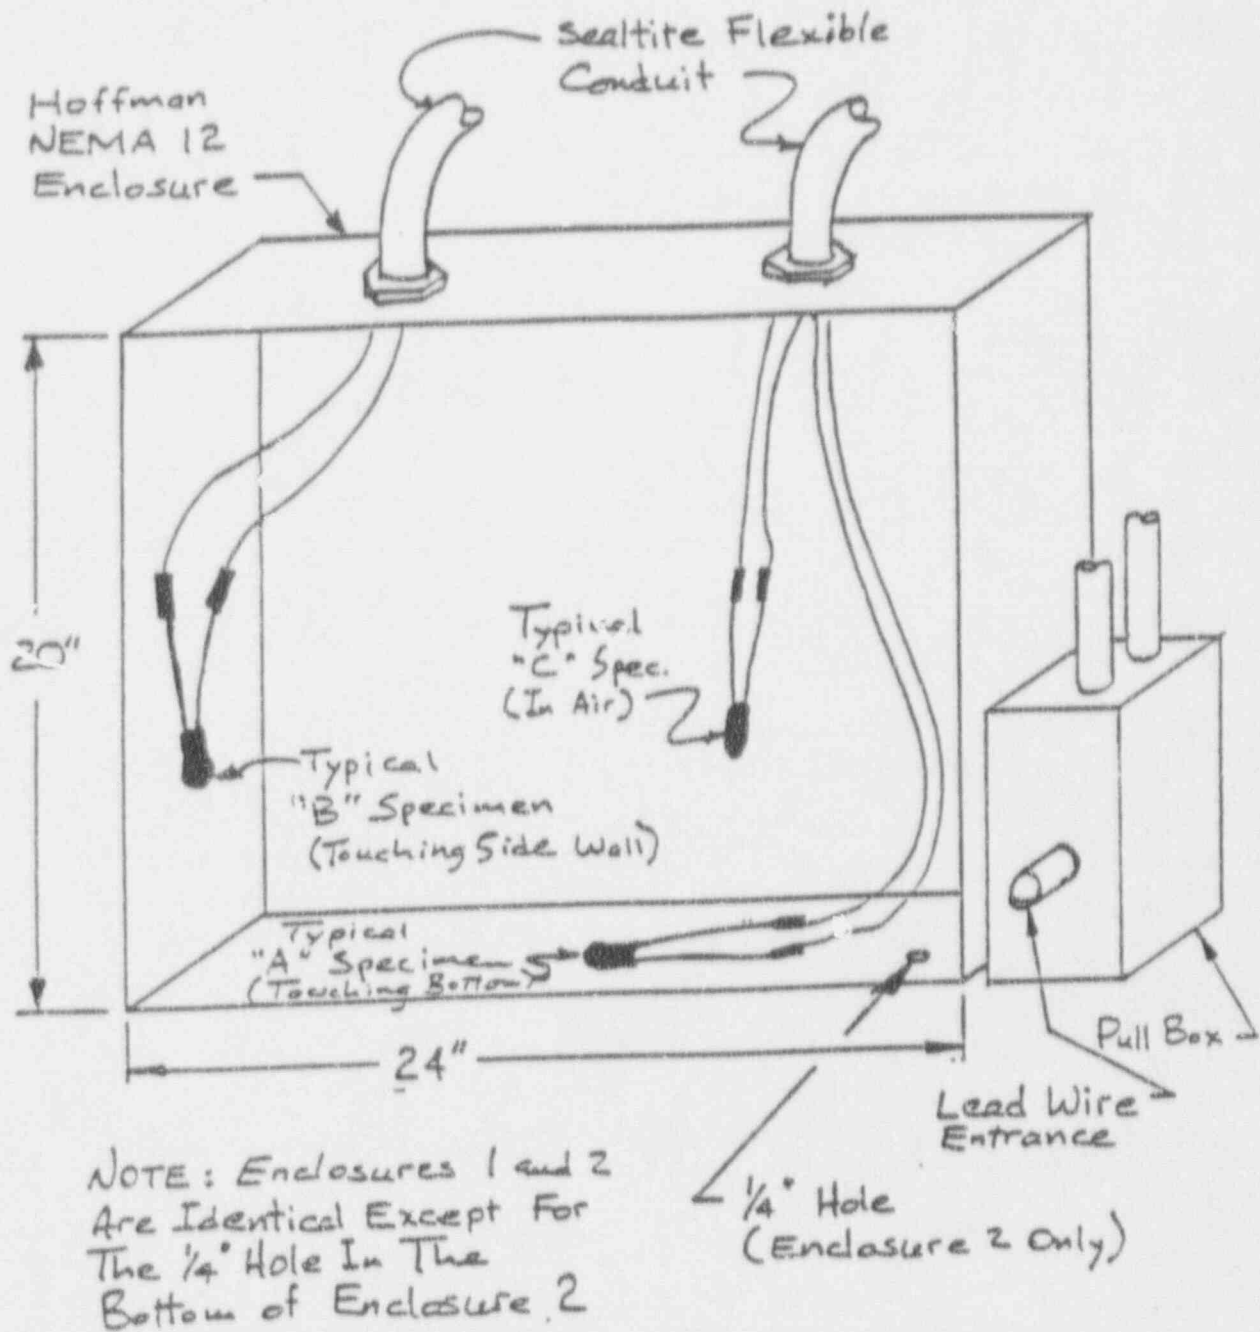 Sealtite Flexible
Conduit
Hoffman
NEMA 12
Enclosure
20"
Typical
"C" Spec.
(In Air)
Typical
"B" Specimen
(Touching Side Wall)
Typical
"A" Specimen
(Touching Bottom)
24"
Pull Box
Lead Wire
Entrance
1/4" Hole
(Enclosure 2 Only)
NOTE: Enclosures 1 and 2
Are Identical Except For
The 1/4" Hole In The
Bottom of Enclosure 2